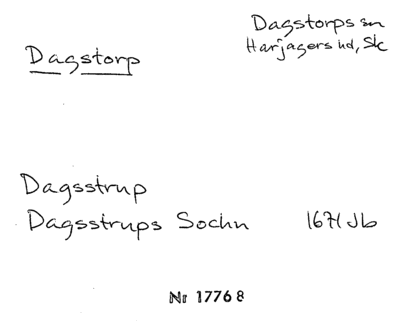 Dagstorp
Dagstorps sn
Harjagers hd, Sk
Dagsstrup
Dagsstrups Sochn 1671 Jb
Nr 17768